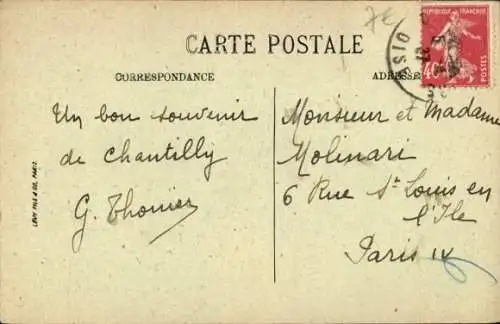 7€
CARTE POSTALE
CORRESPONDANCE
ADRESSE
REPUBLIQUE FRANÇAISE
40
POSTES
OISE
Un bon souvenir
de Chantilly
G. Thonier
Monsieur et Madame
Molinari
6 Rue St Louis en
l'Ile
Paris IV
LEVY FILS & CIE, PARIS